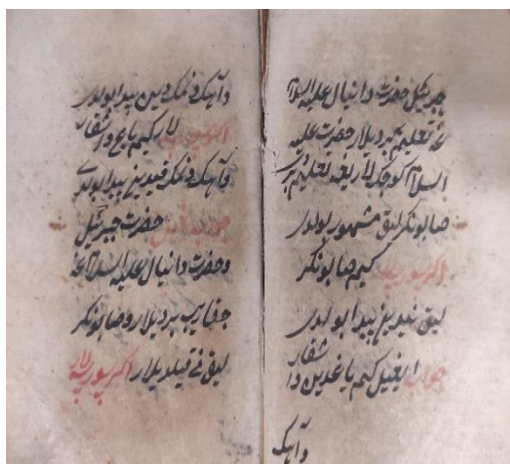 جبرئیل حضرت دانیال علیه السلام
غه تعلیم بردیلار حضرت علیه
السلام کوچک لاریغه تعلیم
صابونکرلیق مشهور بولدی
کیم صابونکر
لیق نیدین پیدا بولدی
جواب ایغیل کیم یاغدین وا شقار
وآهک
وآهک و نمک دین پیدا بولدی
لار کیم یاغ و اشقار
وآهک و نمک قیدین پیدا بولدی
جواب ایغیل حضرت جبرئیل
و حضرت دانیال علیه السلام غه
جقاریب بردیلار و صابونکر
لیق نی قیلدیلار اکر سورسه لار